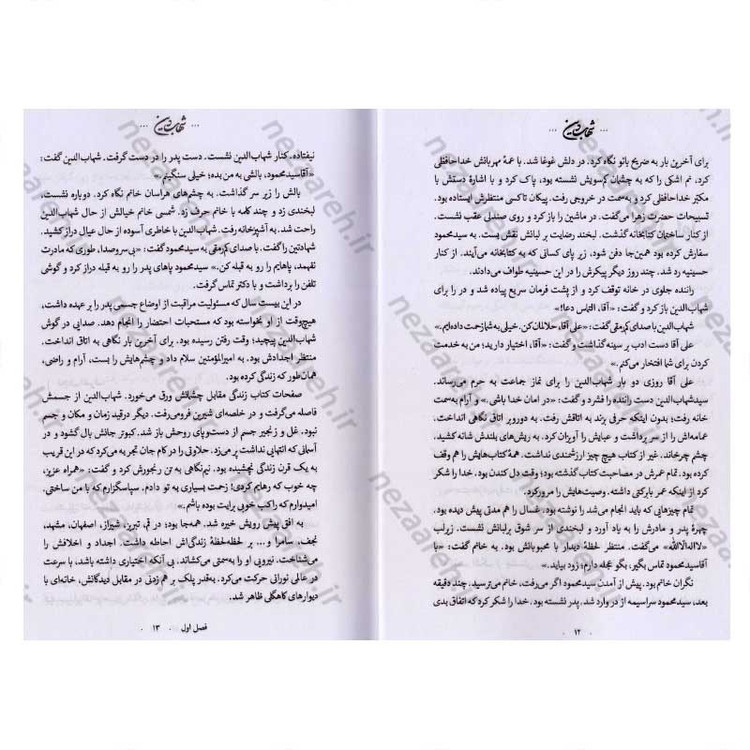 ... شهاب دین ...
برای آخرین بار به ضریح بانو نگاه کرد. در دلش غوغا شد. با عمهٔ مهربانش خداحافظی
کرد. نم اشکی را که به چشمان کم‌سویش نشسته بود، پاک کرد و با اشارهٔ دستش با
مکبّر خداحافظی کرد و به‌سمت در خروجی رفت. پیکان تاکسی منتظرش ایستاده بود.
تسبیحات حضرت زهرا می‌گفت. در ماشین را باز کرد و روی صندلی عقب نشست.
از کنار ساختمان کتابخانه گذشت. لبخند رضایت بر لبانش نقش بست. به سیدمحمود
سفارش کرده بود همین‌جا دفن شود، زیر پای کسانی که به کتابخانه می‌آیند. از کنار
حسینیه رد شد. چند روز دیگر پیکرش را در این حسینیه طواف می‌دادند.
راننده جلوی در خانه توقف کرد و از پشت فرمان سریع پیاده شد و در را برای
شهاب‌الدین باز کرد و گفت: «آقا، التماس دعا!»
شهاب‌الدین با صدای کم‌رمقی گفت: «علی آقا، حلالمان کن. خیلی به شما زحمت داده‌ایم.»
علی آقا دست ادب بر سینه گذاشت و گفت: «آقا، اختیار دارید؛ من به خدمت
کردن برای شما افتخار می‌کنم.»
علی آقا روزی دو بار شهاب‌الدین را برای نماز جماعت به حرم می‌رساند.
سیدشهاب‌الدین دست راننده را فشرد و گفت: «در امان خدا باشی.» و آرام به‌سمت
خانه رفت؛ بدون اینکه حرفی بزند به اتاقش رفت. به دوروبر اتاق نگاهی انداخت.
عمامه‌اش را از سر برداشت و عبایش را آویزان کرد. به ریش‌های بلندش شانه کشید.
چشم چرخاند. غیر از کتاب هیچ چیز ارزشمندی نداشت. همهٔ کتاب‌هایش را هم وقف
کرده بود. تمام عمرش در مصاحبت کتاب گذشته بود؛ وقت دل کندن بود. خدا را شکر
کرد از اینکه عمر بابرکتی داشته. وصیت‌هایش را مرور کرد.
تمام چیزهای که باید انجام می‌شد را نوشته بود. غسال را هم مدتی پیش دیده بود.
چهرهٔ پدر و مادرش را به یاد آورد و لبخندی از سر شوق بر لبانش نشست. زیرلب
«لااله‌الاالله» می‌گفت. منتظر لحظهٔ دیدار با محبوبانش بود. به خانم گفت: «با
آقاسیدمحمود تماس بگیر، بگو عجله دارم؛ زود بیاید.»
نگران خانم بود. پیش از آمدن سیدمحمود اگر می‌رفت، خانم می‌ترسید. چند دقیقه
بعد، سیدمحمود سراسیمه از در وارد شد. پدر نشسته بود. خدا را شکر کرد که اتفاق بدی
۱۲ .
... شهاب دین ...
نیفتاده. کنار شهاب‌الدین نشست. دست پدر را در دست گرفت. شهاب‌الدین گفت:
«آقاسیدمحمود، بالشی به من بده؛ خیلی سنگینم.»
بالش را زیر سر گذاشت. به چشم‌های هراسان خانم نگاه کرد. دوباره نشست،
لبخندی زد و چند کلمه با خانم حرف زد. خانم خیالش از حال شهاب‌الدین
راحت شد. به آشپزخانه رفت. شهاب‌الدین با خاطری آسوده از حال عیال دراز کشید.
شهادتین را گفت. با صدای کم‌رمقی به سیدمحمود گفت: «بی‌سروصدا، طوری که مادرت
نفهمد، پاهایم را رو به قبله کن.» سیدمحمود پاهای پدر را رو به قبله دراز کرد و گوشی
تلفن را برداشت و با دکتر تماس گرفت.
در این بیست سال که مسئولیت مراقبت از اوضاع جسمی پدر را بر عهده داشت،
هیچ‌وقت از او نخواسته بود که مستحبات احتضار را انجام دهد. صدایی در گوش
شهاب‌الدین پیچید: وقت رفتن رسیده بود. برای آخرین بار نگاهی به اتاق انداخت.
منتظر اجدادش بود. به امیرالمؤمنین سلام داد و چشم‌هایش را بست، آرام و راضی،
همان‌طور که زندگی کرده بود.
صفحات کتاب زندگی مقابل چشمانش ورق می‌خورد. شهاب‌الدین از جسمش
فاصله می‌گرفت و در خلسه‌ای شیرین فرومی‌رفت. دیگر درقید زمان و مکان و جسم
نبود. غل و زنجیر جسم از دست‌وپای روحش باز شد. کبوتر جانش بال گشود و در
آسمانی که انتهایی نداشت پر می‌زد. حلاوتی را در کام جان تجربه می‌کرد که در این قریب
به یک قرن زندگی نچشیده بود. نیم‌نگاهی به تن رنجورش کرد و گفت: «همراه عزیز،
چه خوب که رهایم کردی! زحمت بسیاری به تو دادم. سپاسگزارم که با من ساختی.
امیدوارم که راکب خوبی برایت بوده باشم.»
به افق پیش رویش خیره شد. همه‌جا بود؛ در قم، تبریز، شیراز، اصفهان، مشهد،
نجف، سامرا و... بر لحظه‌لحظهٔ زندگی‌اش احاطه داشت. اجداد و اخلافش را
می‌شناخت. نیرویی او را به‌سمتی می‌کشاند. بی آنکه اختیاری داشته باشد، با سرعت
در عالمی نورانی حرکت می‌کرد. به‌قدر پلک بر هم زدنی در مقابل دیدگانش، خانه‌ای با
دیوارهای کاهگلی ظاهر شد.
فصل اول . ۱۳ .
nezaareh.ir